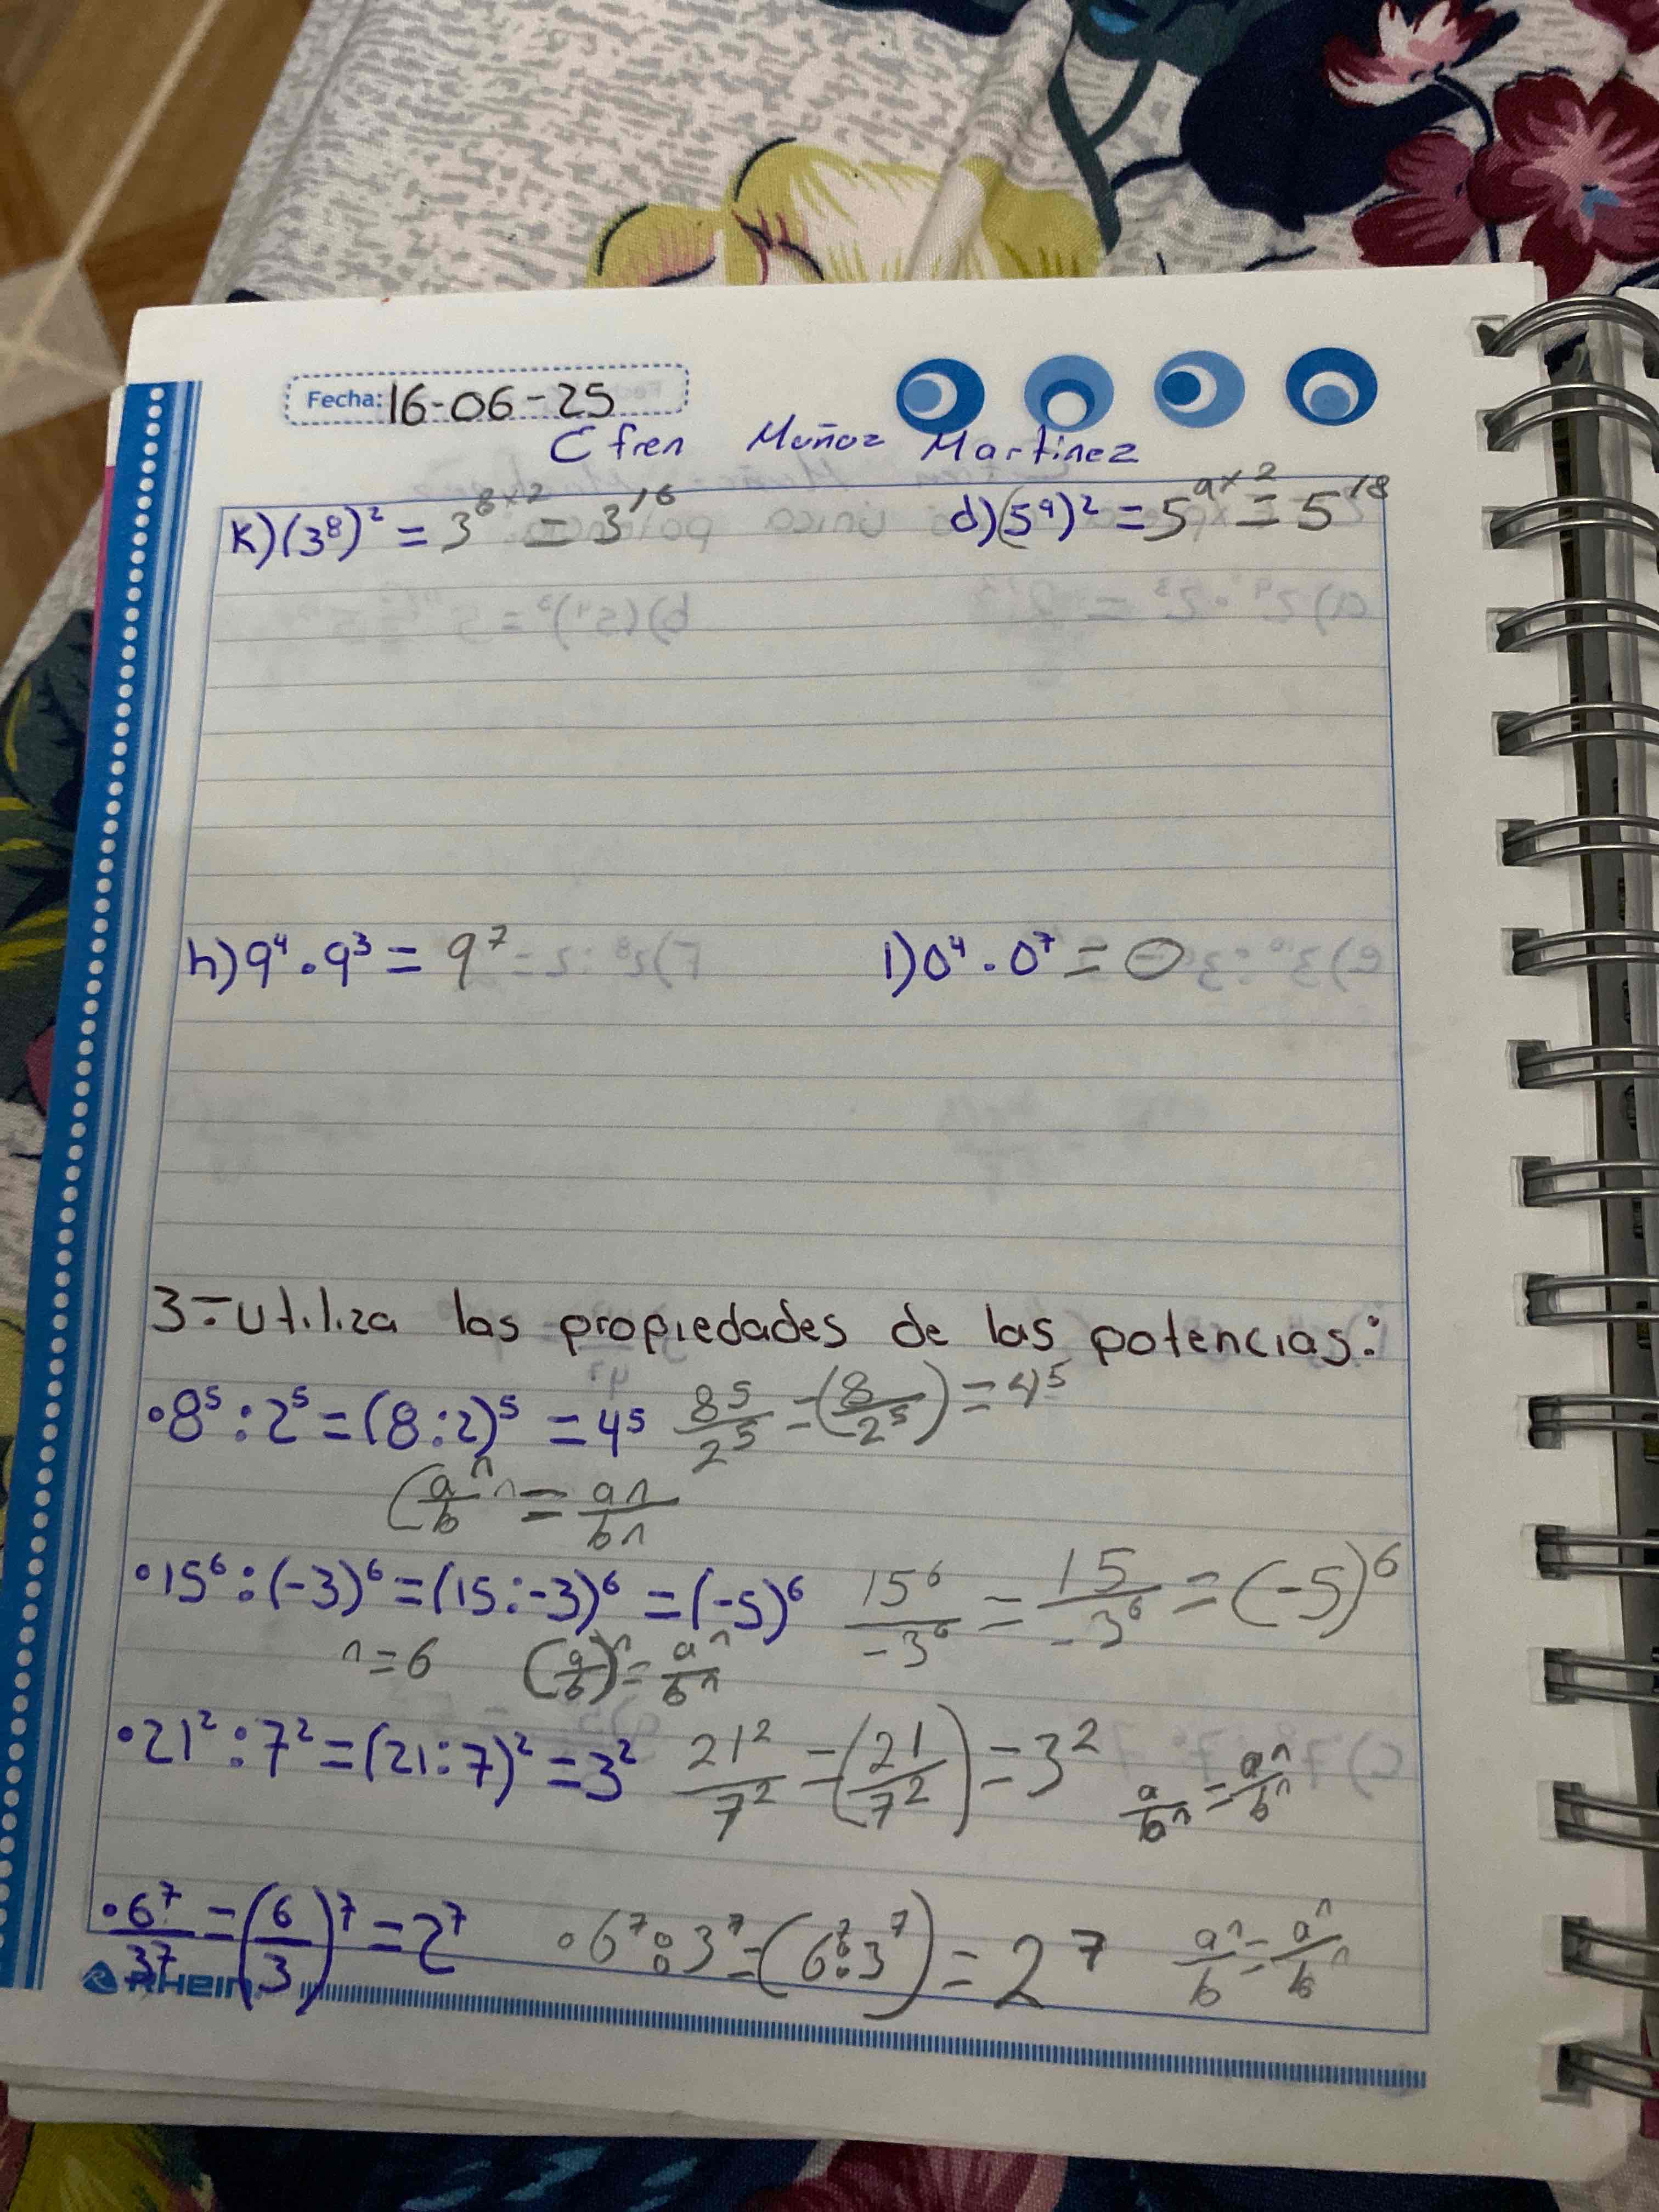 Fecha: 16-06-25
Efren Muñoz Martinez
K) (3⁸)² = 3⁸ˣ² = 3¹⁶ d) (5⁹)² = 5⁹ˣ² = 5¹⁸
h) 9⁴ · 9³ = 9⁷ i) 0⁴ · 0⁷ = 0
3=utiliza las propiedades de las potencias:
• 8⁵ : 2⁵ = (8 : 2)⁵ = 4⁵ 8⁵/2⁵ = (8/2⁵) = 4⁵
(a/b ⁿ ⁿ = an/bn
• 15⁶ : (-3)⁶ = (15 : -3)⁶ = (-5)⁶ 15⁶/-3⁶ = 15/-3⁶ = (-5)⁶
n = 6 (a/b)ⁿ = aⁿ/bⁿ
• 21² : 7² = (21 : 7)² = 3² 21²/7² = (21/7²) = 3² a/bⁿ = aⁿ/bⁿ
• 6⁷/37 = (6/3)⁷ = 2⁷ • 6⁷ : 3⁷ = (6⁷ : 3⁷) = 2⁷ aⁿ/b = aⁿ/bⁿ
Rhein